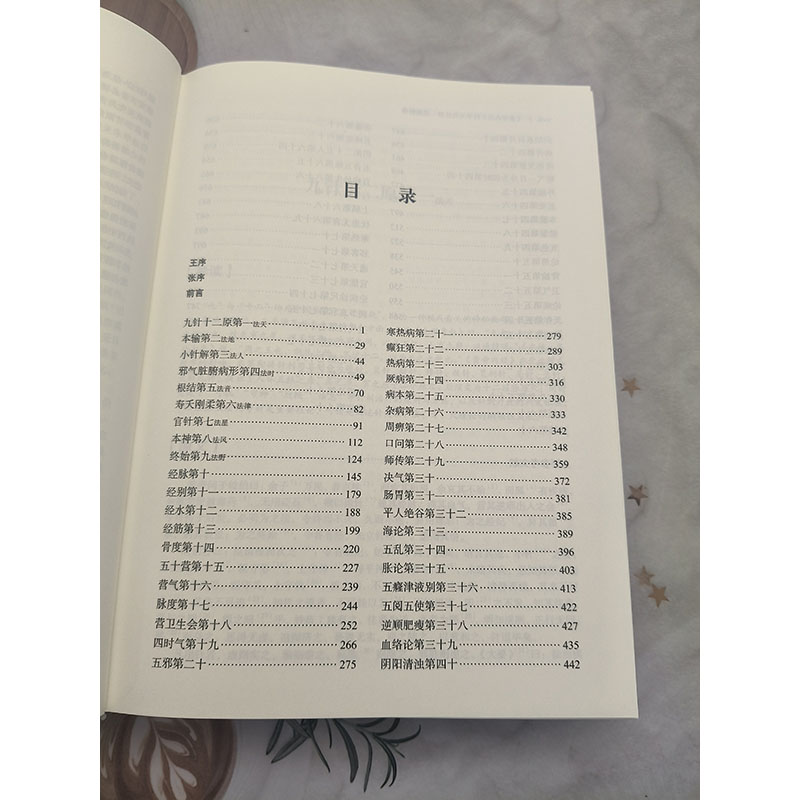 目 录
王序
张序
前言
九针十二原第一法天 1
本输第二法地 29
小针解第三法人 44
邪气脏腑病形第四法时 49
根结第五法音 70
寿夭刚柔第六法律 82
官针第七法星 91
本神第八法风 112
终始第九法野 124
经脉第十 145
经别第十一 179
经水第十二 188
经筋第十三 199
骨度第十四 220
五十营第十五 227
营气第十六 239
脉度第十七 244
营卫生会第十八 252
四时气第十九 266
五邪第二十 275
寒热病第二十一 279
癫狂第二十二 289
热病第二十三 303
厥病第二十四 316
病本第二十五 330
杂病第二十六 333
周痹第二十七 342
口问第二十八 348
师传第二十九 359
决气第三十 372
肠胃第三十一 381
平人绝谷第三十二 385
海论第三十三 389
五乱第三十四 396
胀论第三十五 403
五癃津液别第三十六 413
五阅五使第三十七 422
逆顺肥瘦第三十八 427
血络论第三十九 435
阴阳清浊第四十 442